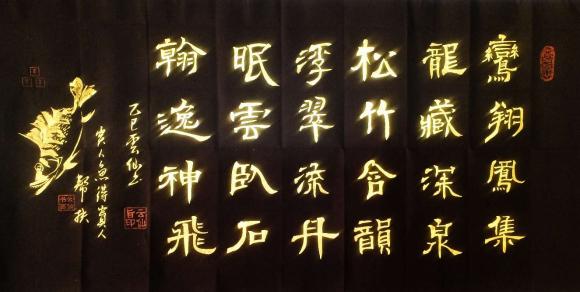 鸞翔鳳集
龍藏深泉
松竹含韻
浮翠流丹
眠雲臥石
翰逸神飛
乙巳雲仙書
貴人魚得貴人
幫扶